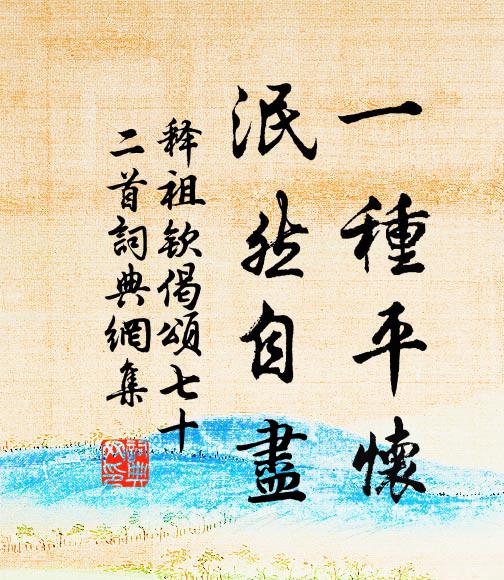 一種平懷
泯然自盡
释祖欽偈頌七十
二首詞典網集